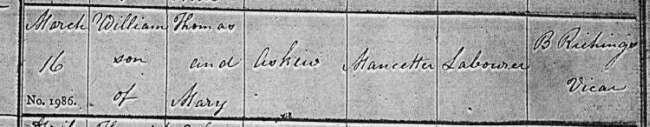 March William Thomas
16 son and Askew Mancetter Labourer B Richings
No. 1986. of Mary Vicar